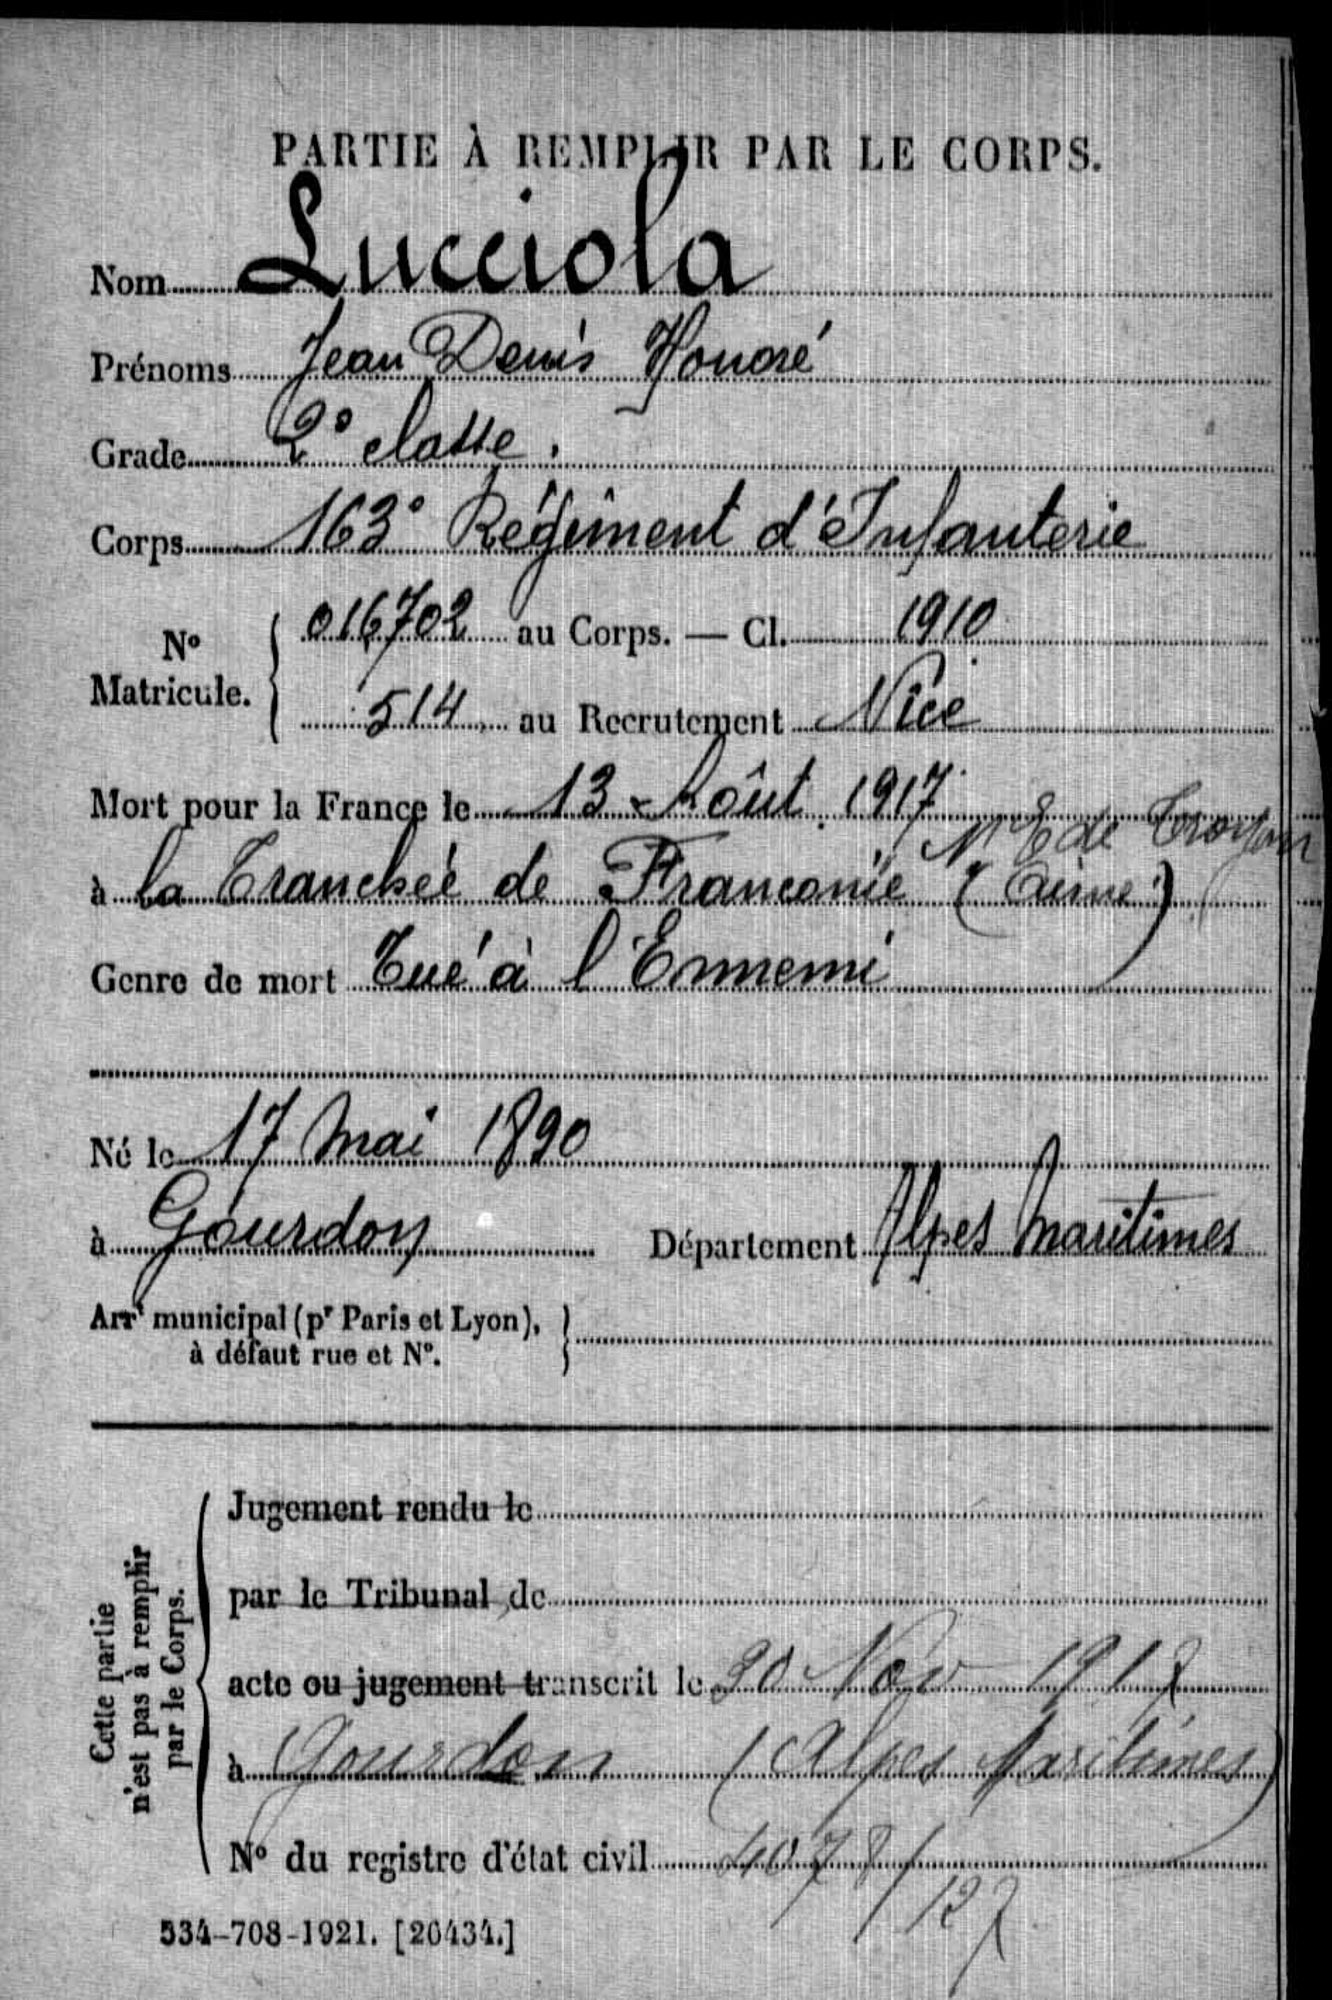 PARTIE À REMPLIR PAR LE CORPS.
Nom Lucciola
Prénoms Jean Denis Honoré
Grade 2e classe.
Corps 163e Régiment d'Infanterie
No Matricule. 016702 au Corps. — Cl. 1910
514 au Recrutement Nice
Mort pour la France le 13 Août 1917
N E de Troyon
à la Tranchée de Franconie (Aisne)
Genre de mort Tué à l'Ennemi
Né le 17 Mai 1890
à Gourdon Département Alpes Maritimes
Arrt municipal (pr Paris et Lyon),
à défaut rue et No.
Cette partie
n'est pas à remplir
par le Corps.
Jugement rendu le
par le Tribunal de
acte ou jugement transcrit le 30 Nov 1917
à Gourdon (Alpes Maritimes)
No du registre d'état civil 4078/127
534-708-1921. [20434.]